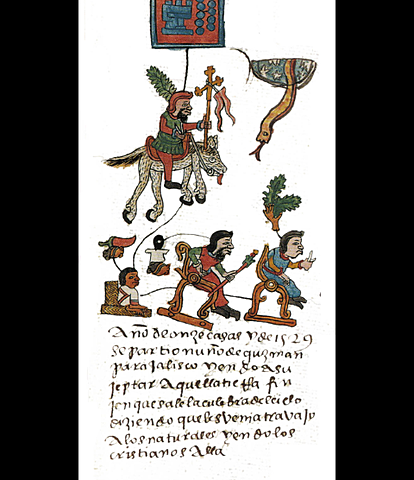 Año de onze casas y de 1529
se partio nuño de guzman
para jalisco yendo a su
jeptar aquella tierra fin
jen que sale la culebra del cielo
diziendo que les venia travajo
a los naturales yendo los
cristianos alla